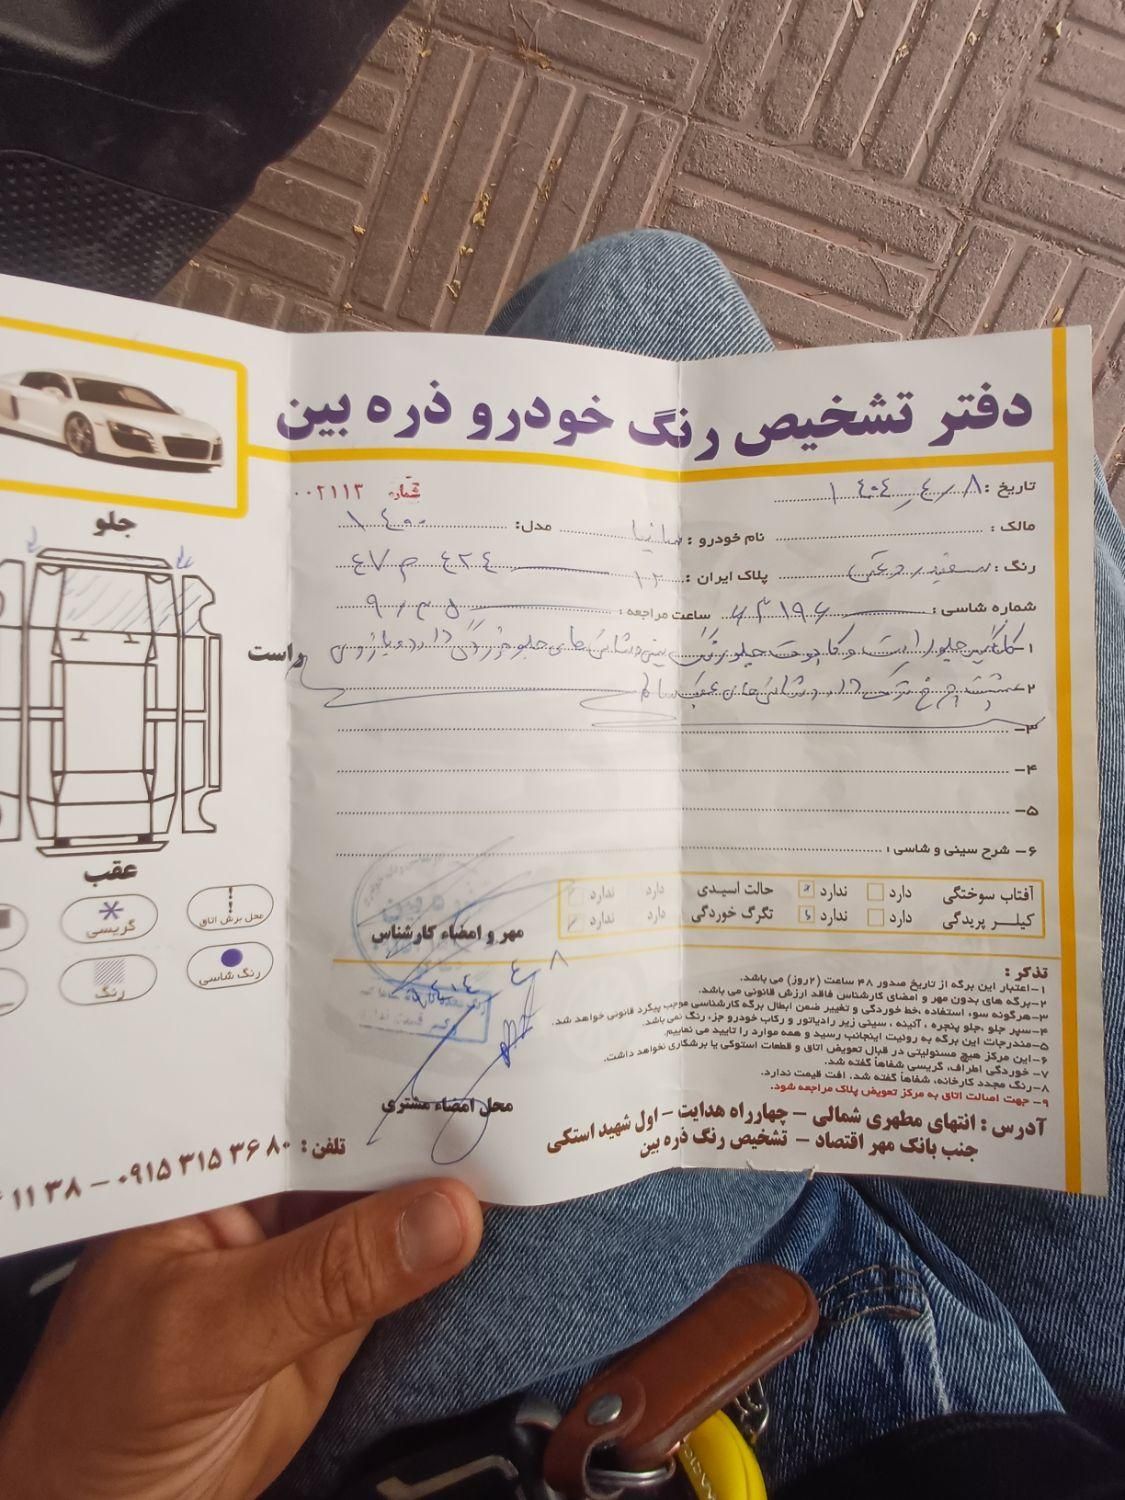 دفتر تشخیص رنگ خودرو ذره بین
شماره ۰۰۲۱۱۳
تاریخ : ۱۴۰۴/۴/۸
مالک :
نام خودرو : ساینا
مدل: ۱۴۰۰
رنگ : سفید روغنی
پلاک ایران : ۱۲ ۴۲۴ م ۴۷
شماره شاسی :
ساعت مراجعه : ۹/۳۵
۱- گلگیر جلو راست و کاپوت جلو رنگ سینی و شاسی های جلو خوردگی دارد بازوی
۲- پشت چرخ ترک دارد شاسی های عقب سالم
۳-
۴-
۵-
۶- شرح سینی و شاسی :
آفتاب سوختگی دارد ندارد حالت اسیدی دارد ندارد
کیلر پریدگی دارد ندارد تگرگ خوردگی دارد ندارد
مهر و امضاء کارشناس
تذکر :
۱- اعتبار این برگه از تاریخ صدور ۴۸ ساعت (۲روز) می باشد.
۲- برگه های بدون مهر و امضای کارشناس فاقد ارزش قانونی می باشد.
۳- هرگونه سوء استفاده ،خط خوردگی و تغییر ضمن ابطال برگه کارشناسی موجب پیگرد قانونی خواهد شد.
۴- سپر جلو ،جلو پنجره ، آئینه ، سینی زیر رادیاتور و رکاب خودرو جزء رنگ نمی باشد.
۵- مندرجات این برگه به رویت اینجانب رسید و همه موارد را تایید می نمایم.
۶- این مرکز هیچ مسئولیتی در قبال تعویض اتاق و قطعات استوکی یا برشکاری نخواهد داشت.
۷- خوردگی اطراف، گریسی شفاهاً گفته شد.
۸- رنگ مجدد کارخانه، شفاهاً گفته شد. افت قیمت ندارد.
۹- جهت اصالت اتاق به مرکز تعویض پلاک مراجعه شود.
محل امضاء مشتری
آدرس : انتهای مطهری شمالی – چهارراه هدایت – اول شهید استکی
جنب بانک مهر اقتصاد – تشخیص رنگ ذره بین
تلفن : ۰۹۱۵ ۳۱۵ ۳۶ ۸۰ – ۱۱ ۳۸
جلو
راست
عقب
محل برش اتاق
گریسی
رنگ شاسی
رنگ